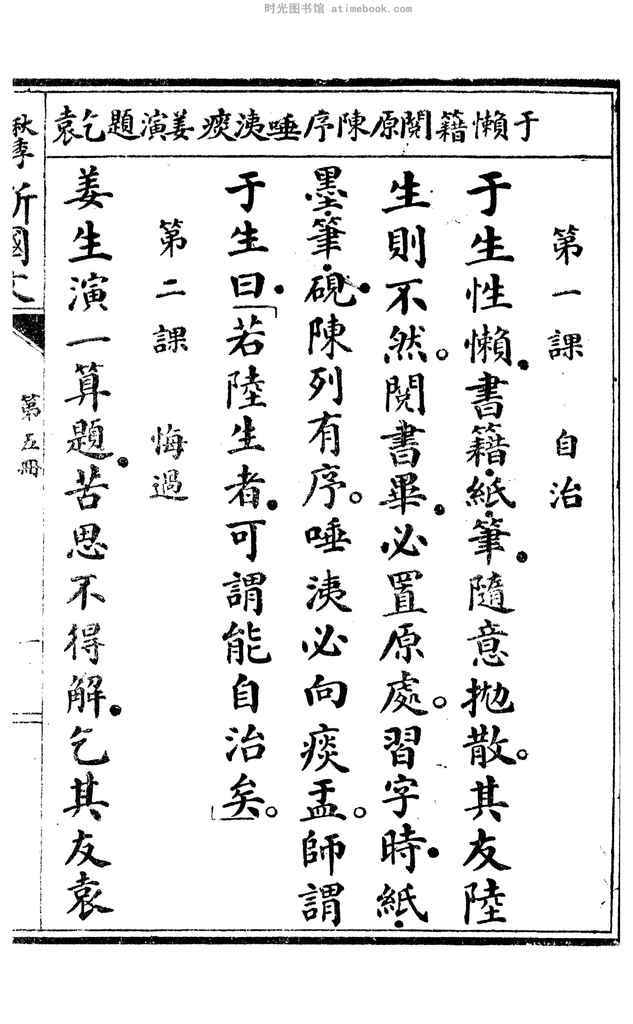 时光图书馆 atimebook.com
于懶籍閱原陳序唾洟痰姜演題乞袁
第一課 自治
于生性懶。書籍·紙·筆。隨意拋散。其友陸
生則不然。閱書畢。必置原處。習字時。紙·
墨·筆·硯。陳列有序。唾洟必向痰盂。師謂
于生曰。「若陸生者。可謂能自治矣。」
第二課 悔過
姜生演一算題。苦思不得解。乞其友袁
秋季新國文
第五冊
一